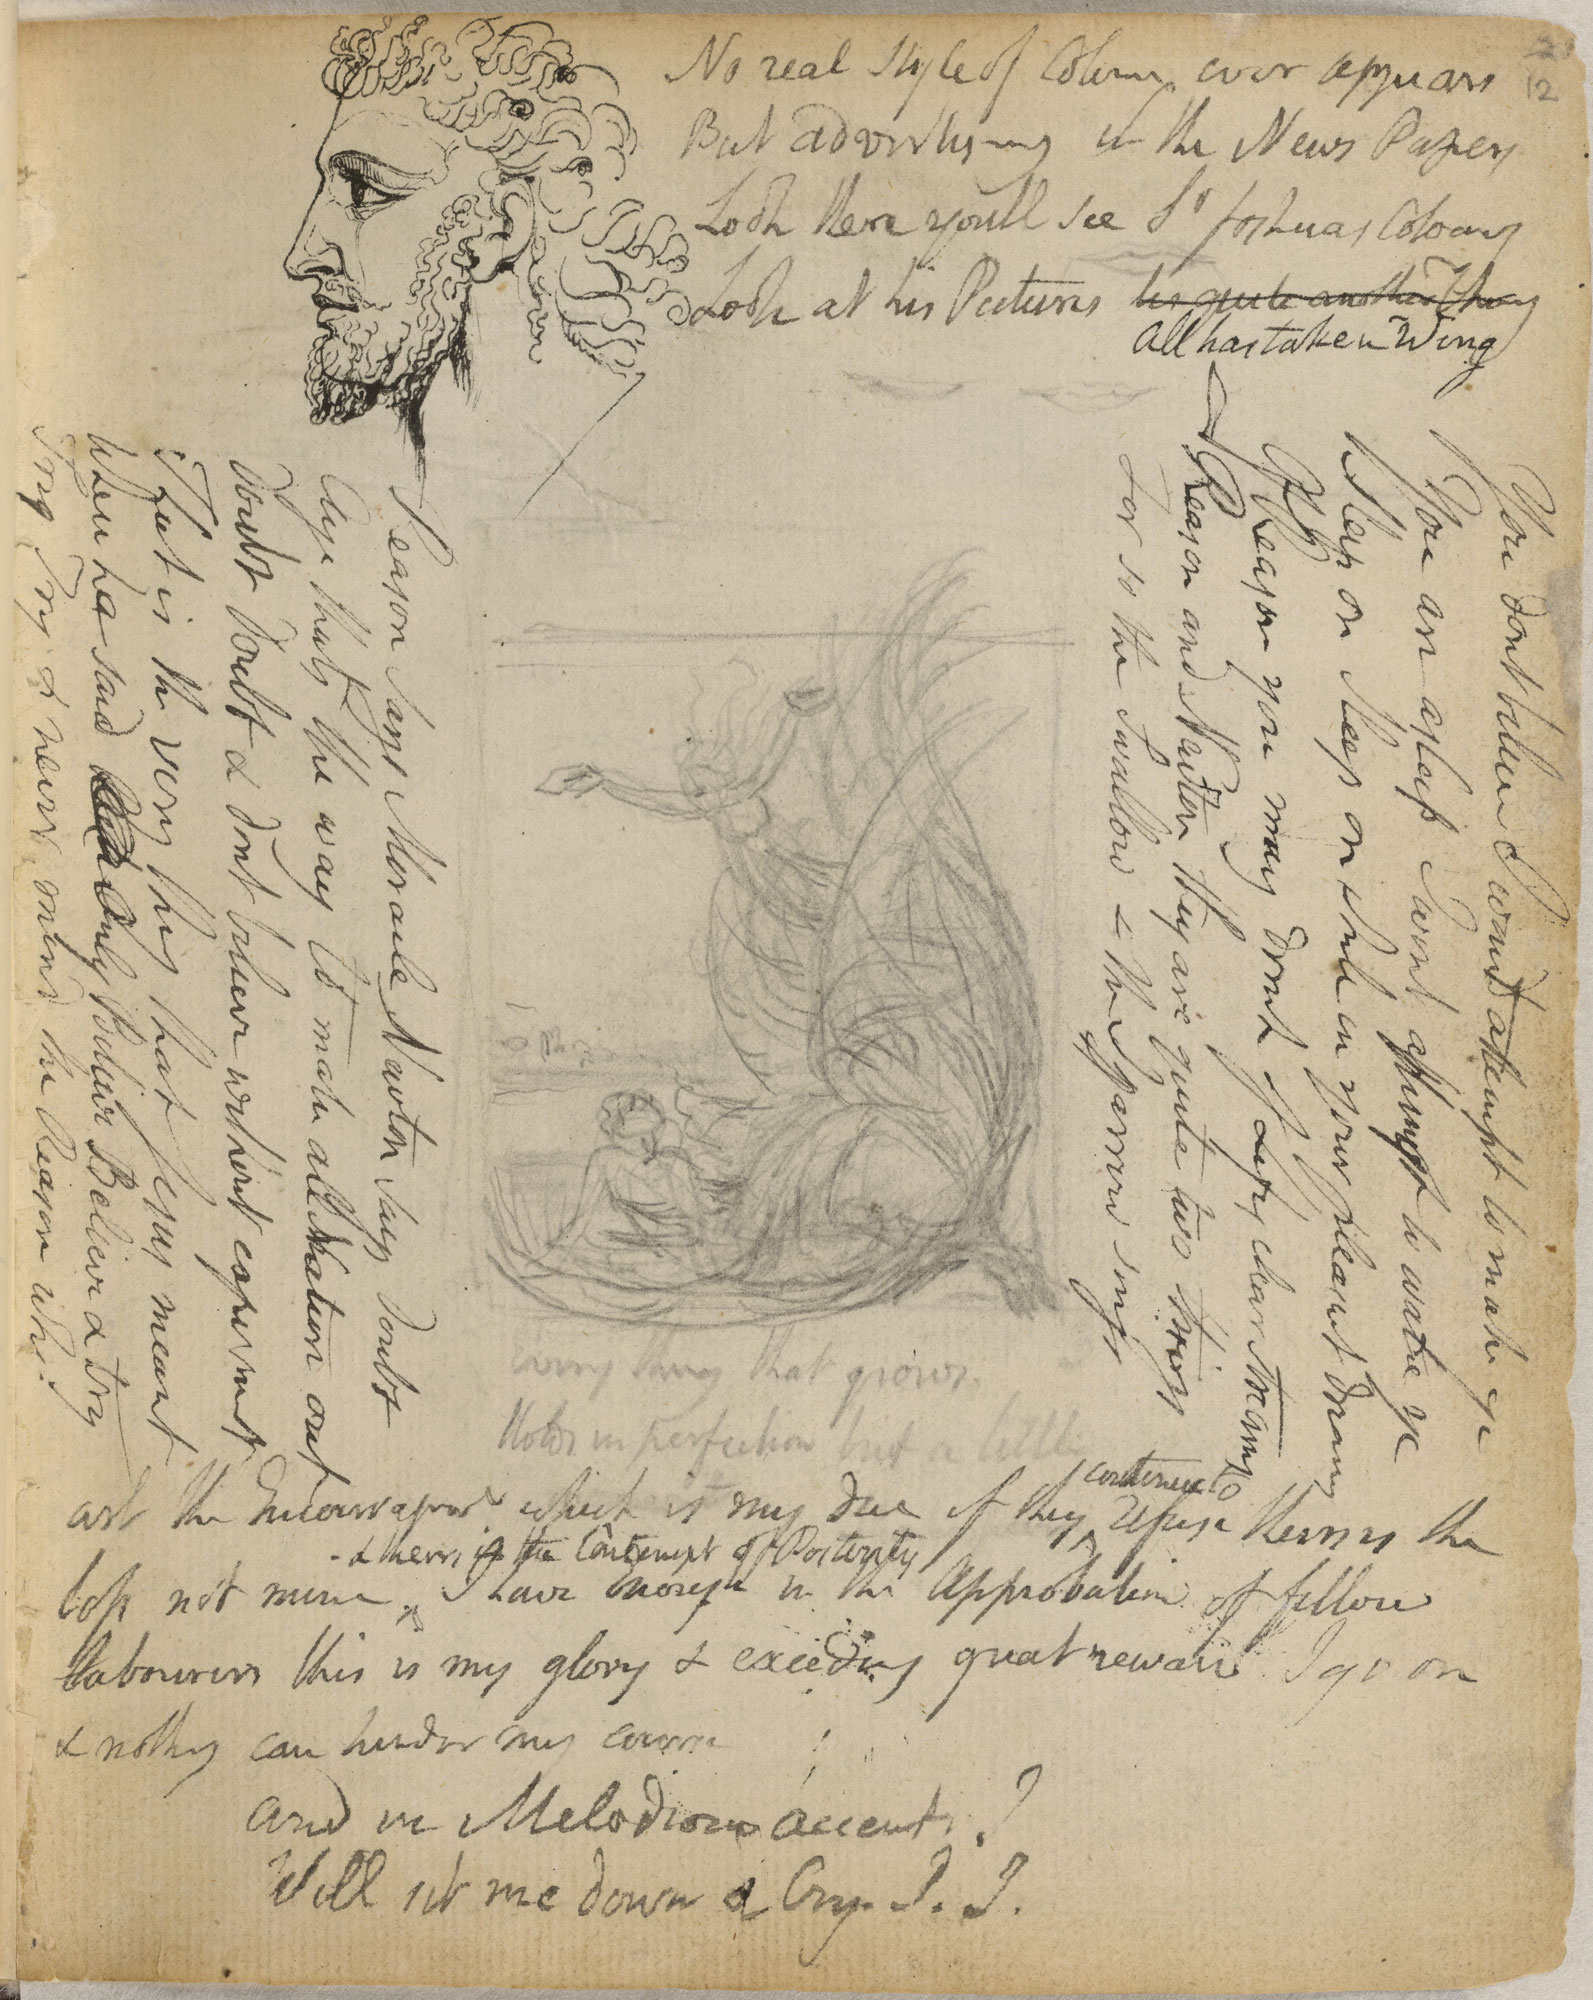 21
12
No real Style of Colouring ever appears
But advertising in the News Papers
Look there youll see Sr Joshuas Colouring
Look at his Pictures tis quite another Thing
All has taken Wing
You dont believe I wont attempt to make ye
You are asleep I wont attempt to wake ye
Sleep on Sleep on while in your pleasant dreams
Of Reason you may drink of Lifes clear streams
Reason and Newton they are quite two things
For so the Swallow & the Sparrow sings
Reason says Miracle Newton says Doubt
Aye thats the way to make all Nature out
Doubt Doubt & dont believe without experiment
That is the very thing that Jesus meant
When he said Only Believe Believe & try
Try Try & never mind the Reason why
every thing that grows
Holds in perfection but a little
art the Encouragement which is my due if they continue to refuse theirs is the
loss not mine & theirs is the Contempt of Posterity I have Enough in the Approbation of fellow
labourers this is my glory & exceeding great reward I go on
& nothing can hinder my course
and in Melodious accents I
Will sit me down & Cry. I. I.